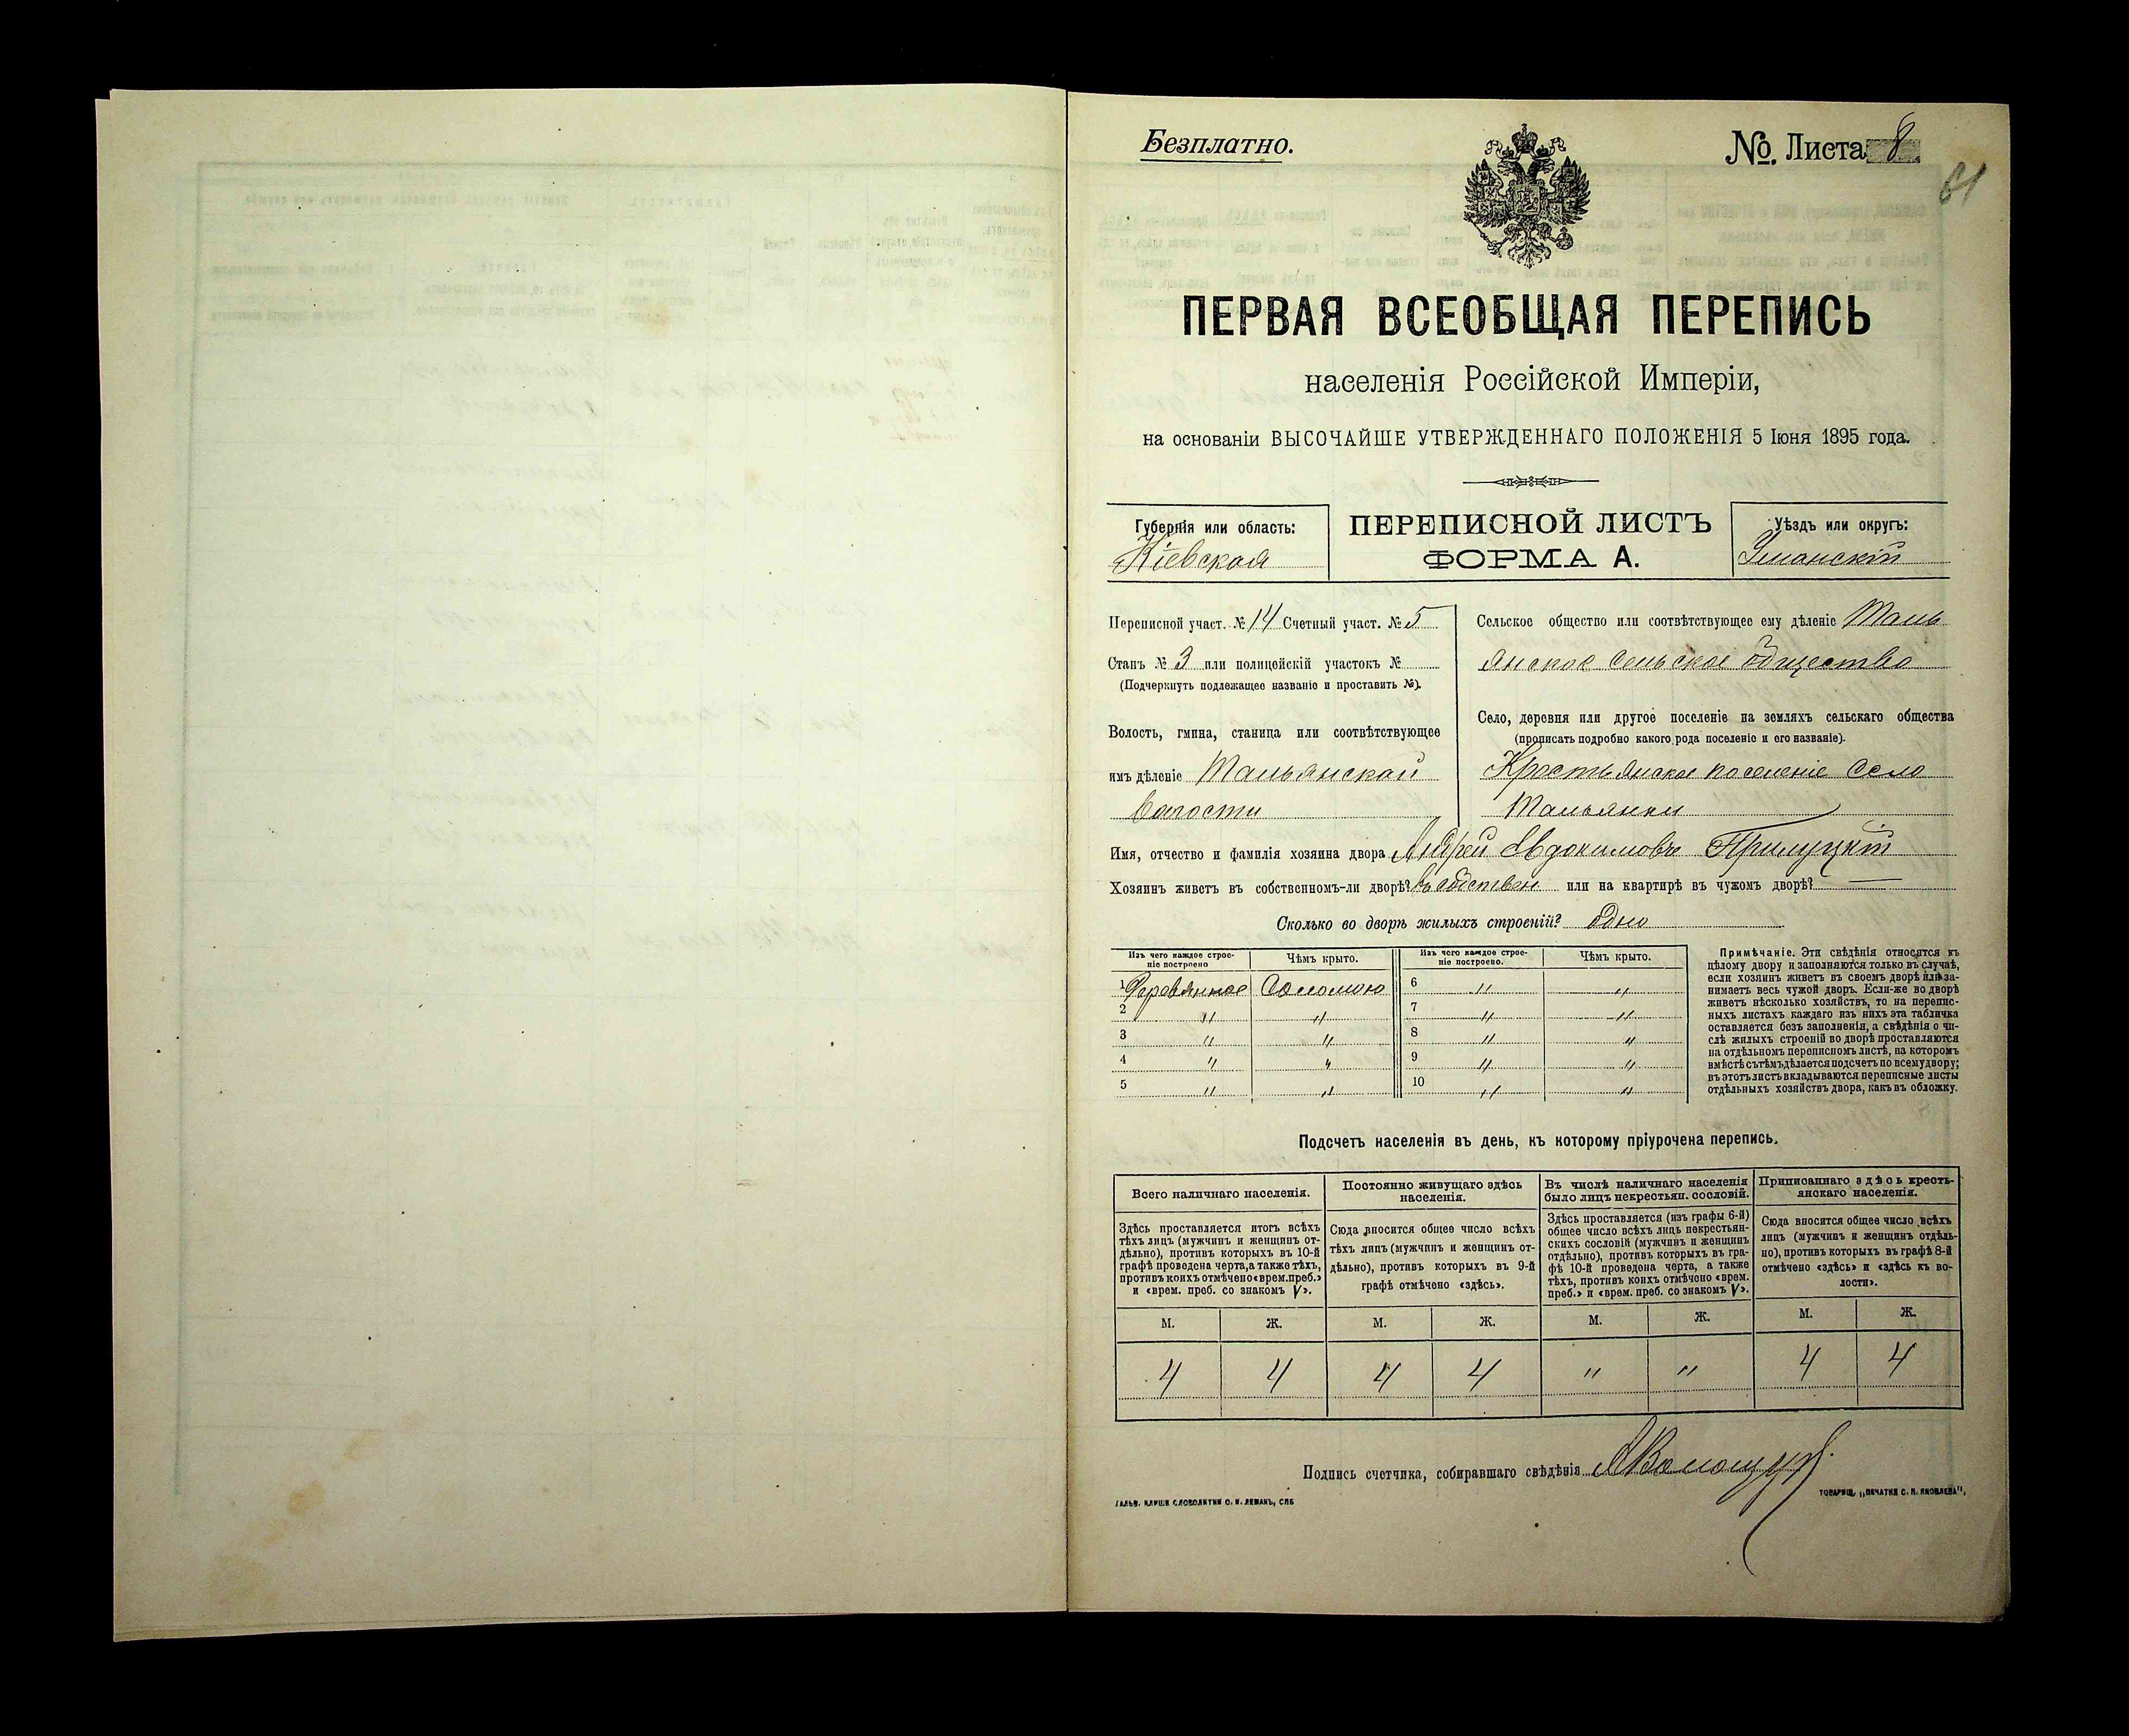 Безплатно.
№. Листа 8
61
ПЕРВАЯ ВСЕОБЩАЯ ПЕРЕПИСЬ
населенія Россійской Имперіи,
на основаніи ВЫСОЧАЙШЕ УТВЕРЖДЕННАГО ПОЛОЖЕНІЯ 5 Іюня 1895 года.
Губернія или область:
Кіевская
ПЕРЕПИСНОЙ ЛИСТЪ
ФОРМА А.
Уѣздъ или округъ:
Уманскій
Переписной участ. № 14 Счетный участ. № 5
Станъ № 3 или полицейскій участокъ №
(Подчеркнуть подлежащее названіе и проставить №).
Волость, гмина, станица или соотвѣтствующее
имъ дѣленіе Тальянской
Волости
Сельское общество или соотвѣтствующее ему дѣленіе Таль
янское Сельское Общество
Село, деревня или другое поселеніе на земляхъ сельскаго общества
(прописать подробно какого рода поселеніе и его названіе).
Крестьянское поселеніе Село
Тальянки
Имя, отчество и фамилія хозяина двора Андрей Евдокимовъ Прилуцкій
Хозяинъ живетъ въ собственномъ-ли дворѣ? Въ собствен или на квартирѣ въ чужомъ дворѣ? —
Сколько во дворѣ жилыхъ строеній? Одно
Изъ чего каждое строе-
ніе построено
Чѣмъ крыто.
Изъ чего каждое строе-
ніе построено.
Чѣмъ крыто.
1 Деревянное Соломою 6 " "
2 " " 7 " "
3 " " 8 " "
4 " " 9 " "
5 " " 10 " "
Примѣчаніе. Эти свѣдѣнія относятся къ
цѣлому двору и заполняются только въ случаѣ,
если хозяинъ живетъ въ своемъ дворѣ или за-
нимаетъ весь чужой дворъ. Если-же во дворѣ
живетъ нѣсколько хозяйствъ, то на перепис-
ныхъ листахъ каждаго изъ нихъ эта табличка
оставляется безъ заполненія, а свѣдѣнія о чи-
слѣ жилыхъ строеній во дворѣ проставляются
на отдѣльномъ переписномъ листѣ, на которомъ
вмѣстѣ съ тѣмъ дѣлается подсчетъ по всему двору;
въ этотъ листъ вкладываются переписные листы
отдѣльныхъ хозяйствъ двора, какъ въ обложку.
Подсчетъ населенія въ день, къ которому пріурочена перепись.
Всего наличнаго населенія.
Здѣсь проставляется итогъ всѣхъ
тѣхъ лицъ (мужчинъ и женщинъ от-
дѣльно), противъ которыхъ въ 10-й
графѣ проведена черта, а также тѣхъ,
противъ коихъ отмѣчено «врем. преб.»
и «врем. преб. со знакомъ V».
Постоянно живущаго здѣсь
населенія.
Сюда вносится общее число всѣхъ
тѣхъ лицъ (мужчинъ и женщинъ от-
дѣльно), противъ которыхъ въ 9-й
графѣ отмѣчено «здѣсь».
Въ числѣ наличнаго населенія
было лицъ некрестьян. сословій.
Здѣсь проставляется (изъ графы 6-й)
общее число всѣхъ лицъ некрестьян-
скихъ сословій (мужчинъ и женщинъ
отдѣльно), противъ которыхъ въ гра-
фѣ 10-й проведена черта, а также
тѣхъ, противъ коихъ отмѣчено «врем.
преб.» и «врем. преб. со знакомъ V».
Приписаннаго здѣсь кресть-
янскаго населенія.
Сюда вносится общее число всѣхъ
лицъ (мужчинъ и женщинъ отдѣль-
но), противъ которыхъ въ графѣ 8-й
отмѣчено «здѣсь» и «здѣсь къ во-
лости».
М. Ж. М. Ж. М. Ж. М. Ж.
4 4 4 4 " " 4 4
Подпись счетчика, собиравшаго свѣдѣнія
ГАЛЬВ. КЛИШЕ СЛОВОЛИТНИ О. И. ЛЕМАНЪ, СПБ
ТОВАРИЩ. „ПЕЧАТНЯ С. П. ЯКОВЛЕВА“.